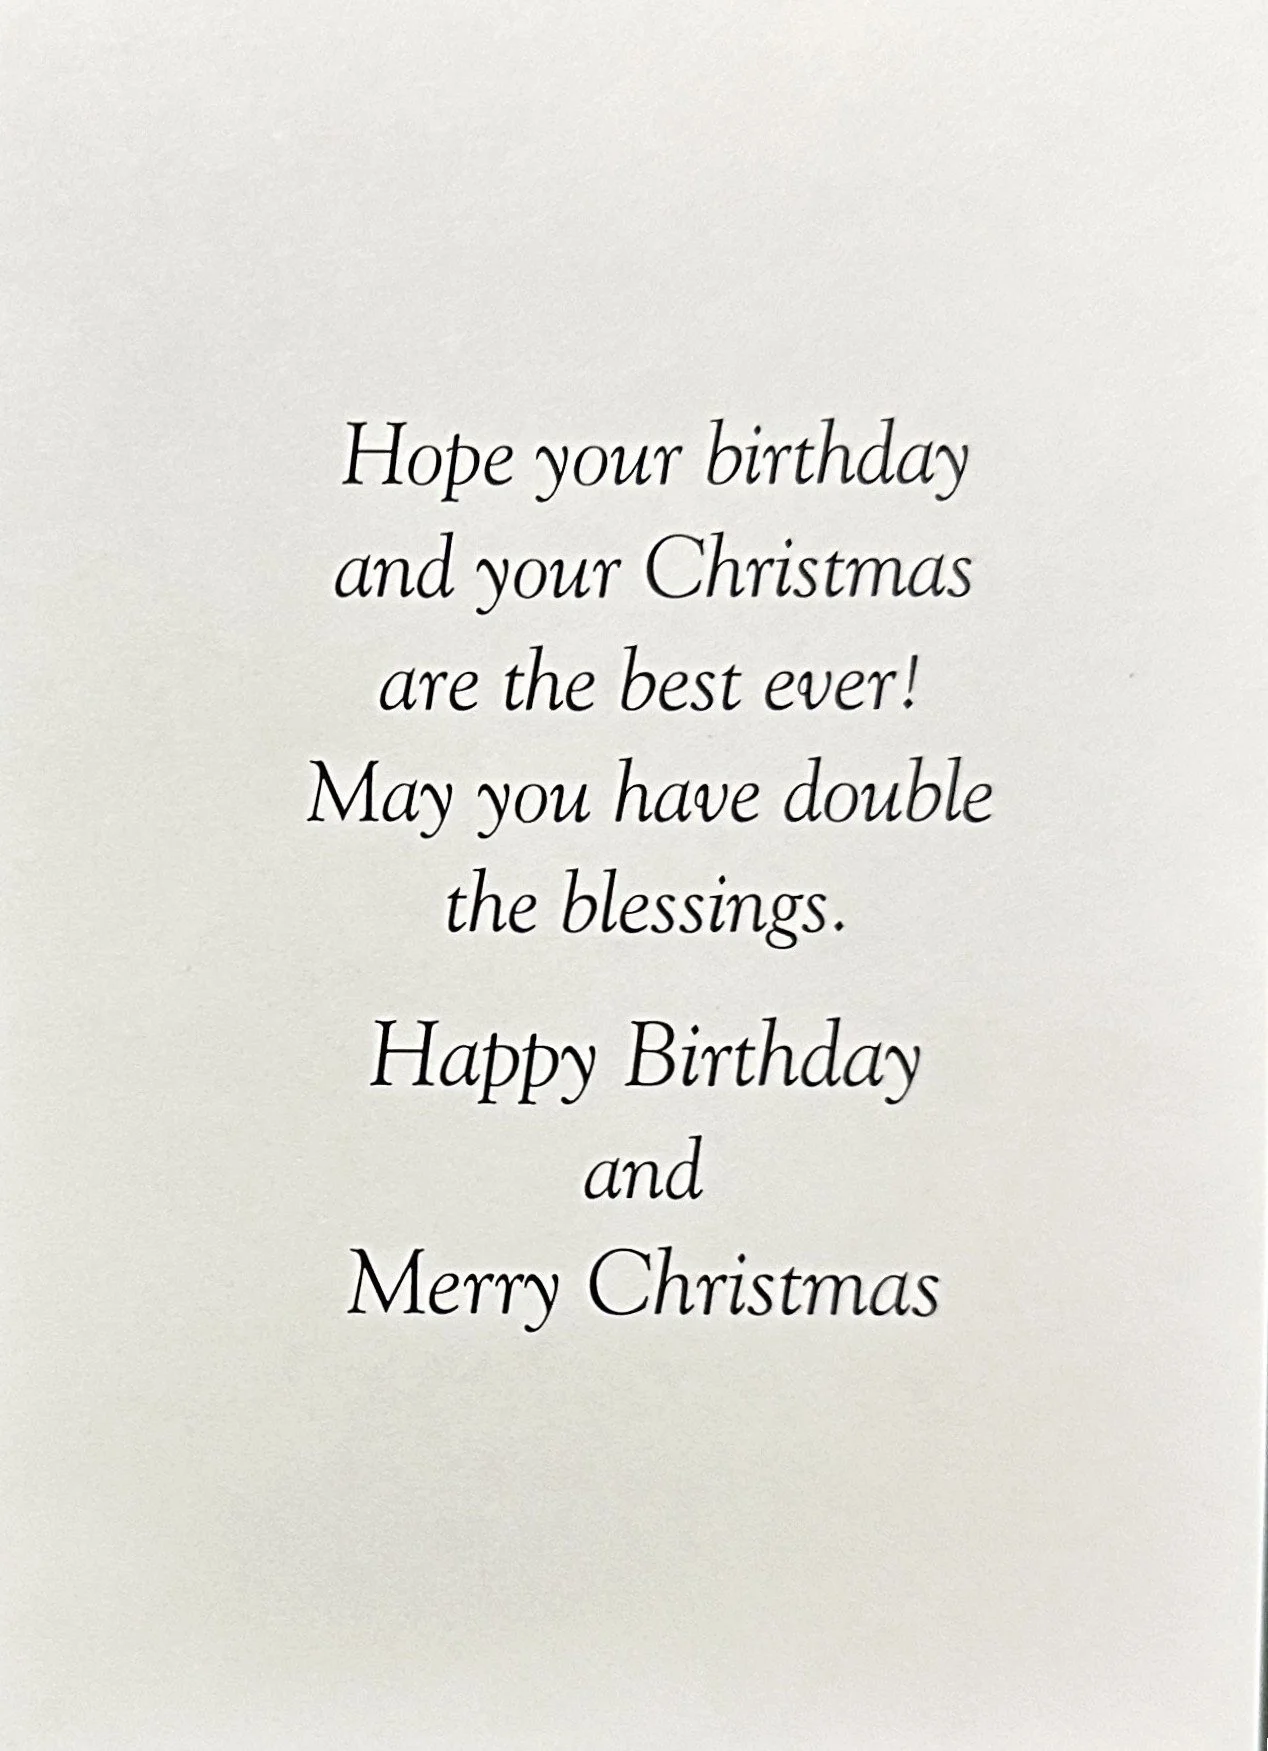 Hope your birthday
and your Christmas
are the best ever!
May you have double
the blessings.
Happy Birthday
and
Merry Christmas